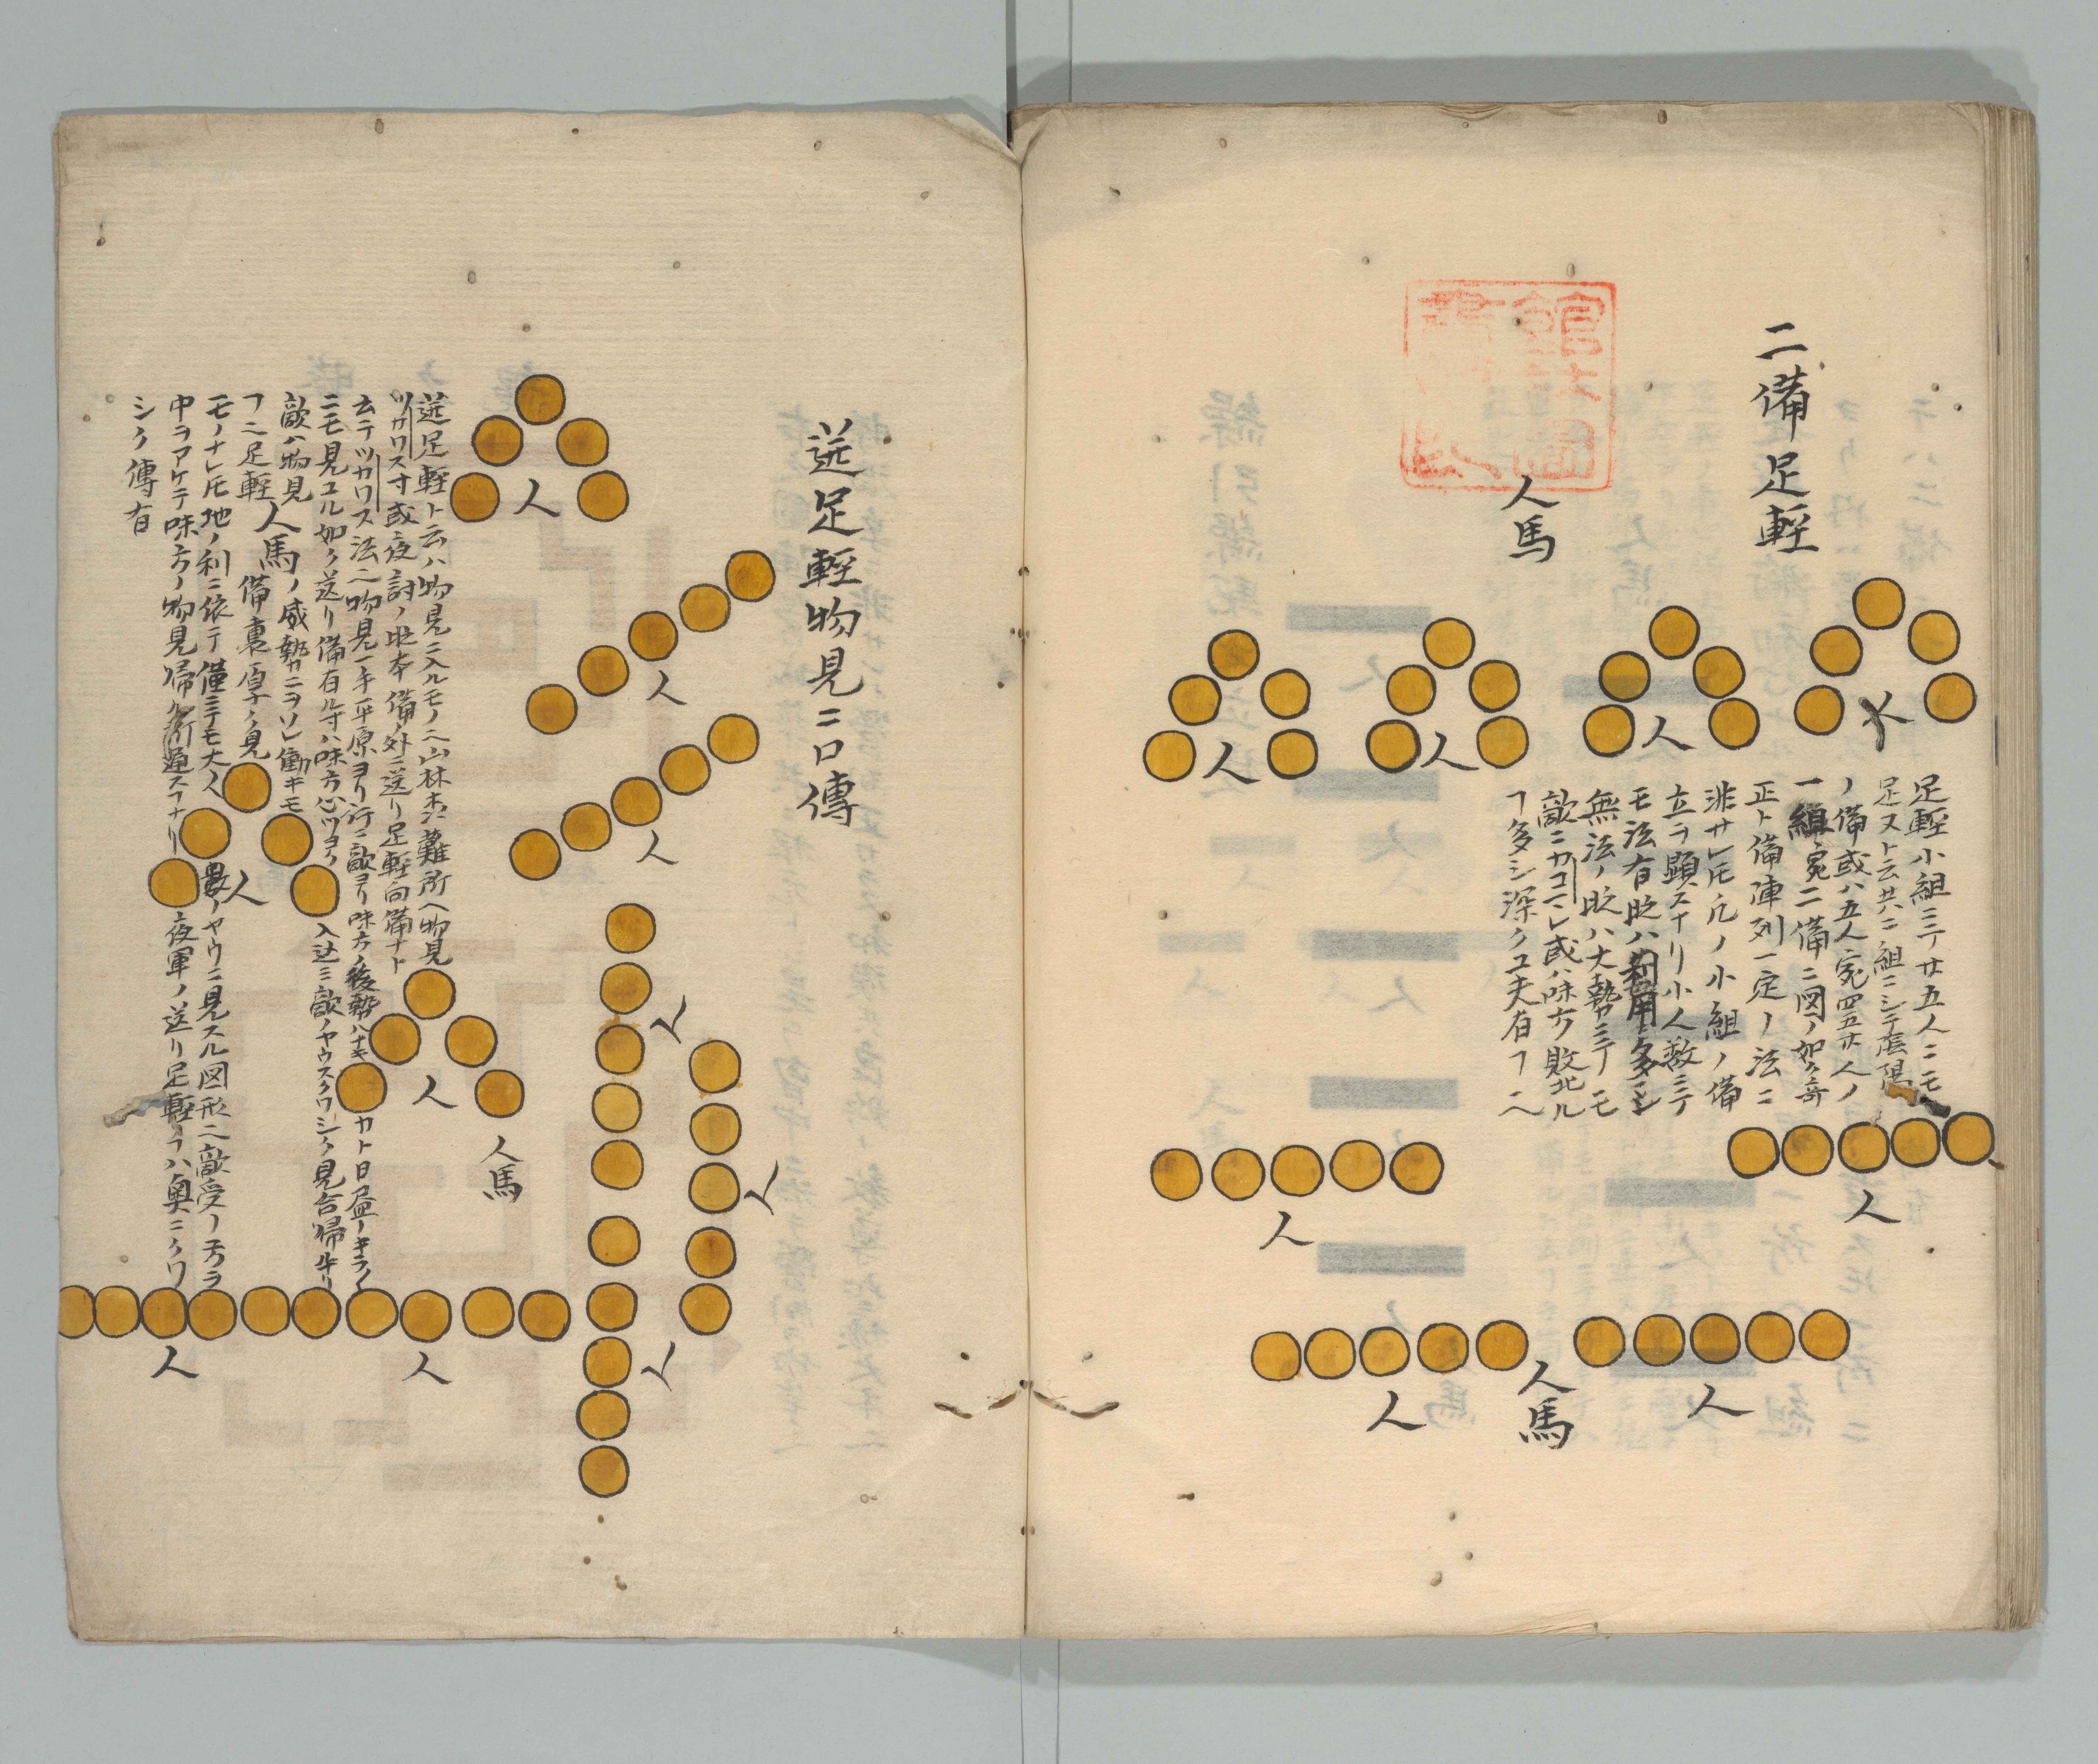 二備足軽
人馬
人
人
人
人
足軽小組ミテ廿五人ニモ
足ストテ共ニ組ニシテ陰陽
ノ備或ハ五人宛四五廿人ノ
一組宛二備ニ図ノ如ク奇
正ト備陣列一定ノ法ニ
非サレ𪜈凡ノ小組ノ備
立ヲ顕スナリ小人数ミテ
モ法有眨ハ利用多シ
無法ノ眨ハ大勢ミテモ
敵ニカコマレ或ハ味方敗北ル
ヿ多シ深ク工夫有ヿ也
人
人
人
人
人馬
送足軽物見ニ口傳
人
人
人
送足軽ト云ハ物見ニ入ルモノ也山林木ニ難所ヘ物見
ツカワス寸或夜討ノ眨本備ノ外ニ送リ足軽向備ナト
云テツカワス法也物見一手平原ヨリ行ニ敵ヨリ味方ノ後勢ハナキカト日益ノキライ
ニモ見ユル如ク送リ備有ル寸ハ味方心ツヨク入込ミ敵ノヤウスクワシク見合帰ナリ
敵ハ物見人馬ノ威勢カニヲソレ働キモ
フニ足軽備裏厚ク見
モノナレ𪜈地ノ利ニ依テ僅ミテモ大人数ノヤウニ見スル図形也敵受ノ方ヲ
中ヲアケテ味方ノ物見帰ル所通スナリ夜軍ノ送リ足軽ノヿハ奥ニクワ
シク傳有
人
人
人馬
人
人
人
人
人